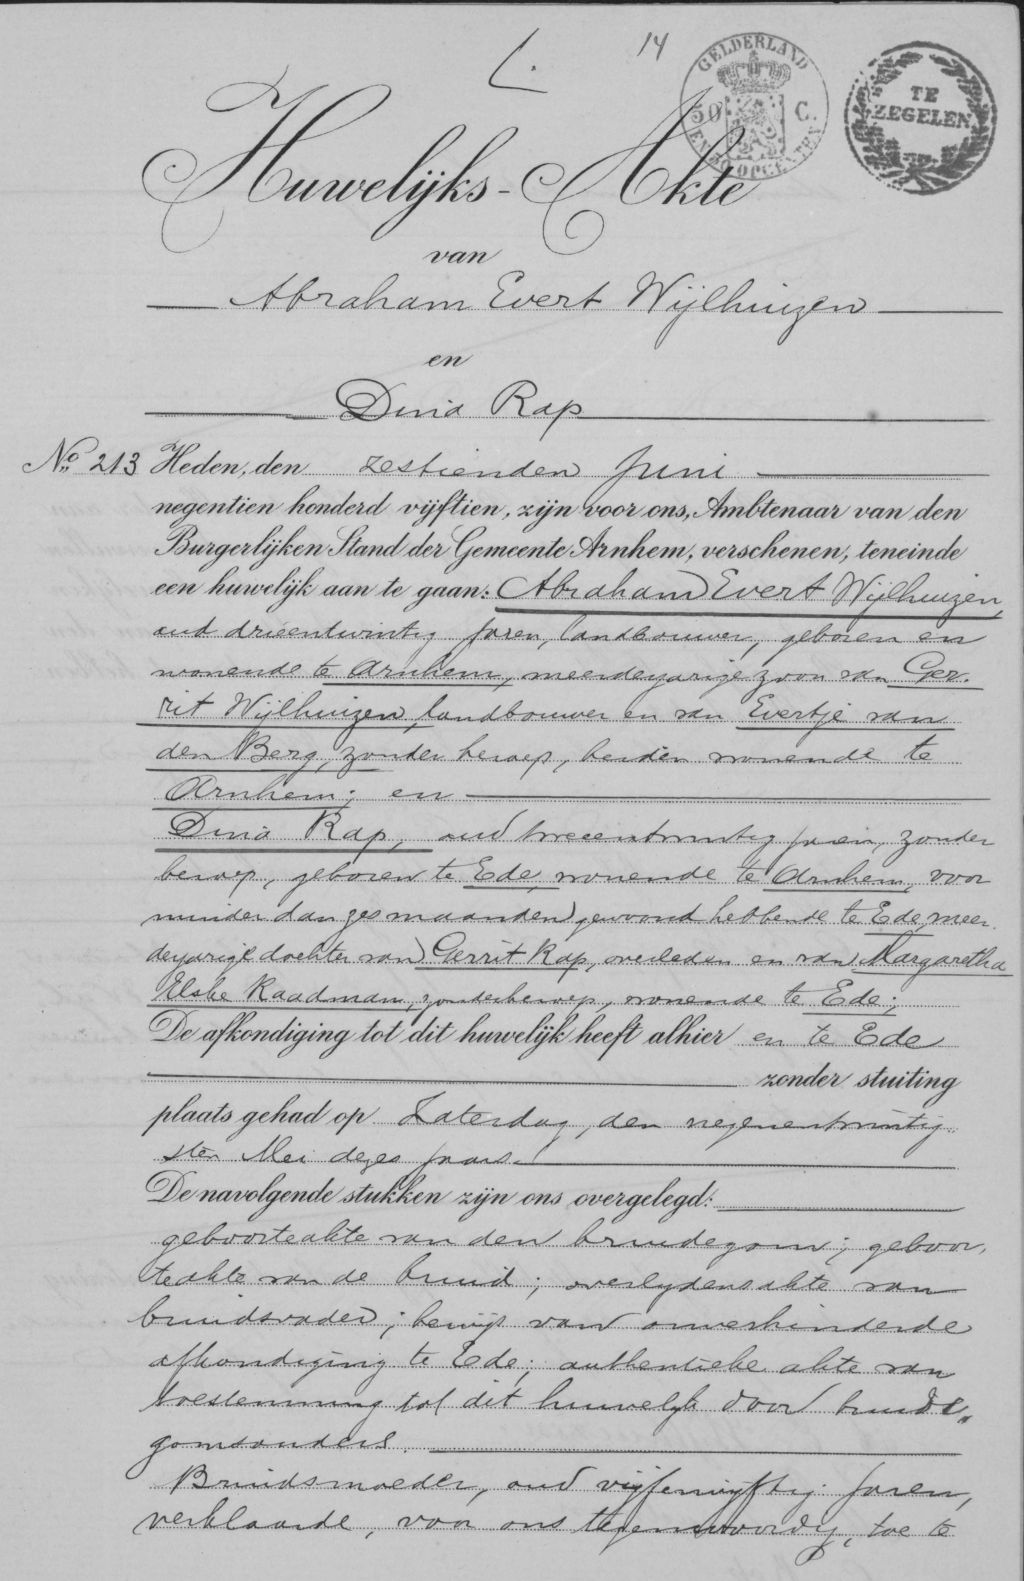 14
GELDERLAND
50 C.
EN 38 OPCENTEN
TE
ZEGELEN
Huwelijks-Akte
van
Abraham Evert Wijlhuizen
en
Dina Rap
No. 213 Heden, den zestienden Juni
negentien honderd vijftien, zijn voor ons, Ambtenaar van den
Burgerlijken Stand der Gemeente Arnhem, verschenen, teneinde
een huwelijk aan te gaan: Abraham Evert Wijlhuizen,
oud drieentwintig jaren, landbouwer, geboren en
wonende te Arnhem, meerderjarige zoon van Ger-
rit Wijlhuizen, landbouwer en van Evertje van
den Berg, zonder beroep, beiden wonende te
Arnhem; en
Dina Rap, oud tweeentwintig jaren, zonder
beroep, geboren te Ede, wonende te Arnhem, voor
minder dan zes maanden gewoond hebbende te Ede, meer-
derjarige dochter van Gerrit Rap, overleden en van Margaretha
Elske Raadman, zonder beroep, wonende te Ede;
De afkondiging tot dit huwelijk heeft alhier en te Ede
zonder stuiting
plaats gehad op Zaterdag, den negenentwintig-
sten Mei dezes jaars.
De navolgende stukken zijn ons overgelegd:
geboorteakte van den bruidegom; geboor-
teakte van de bruid; overlijdensakte van
bruidsvader; bewijs van onverhinderde
afkondiging te Ede; authentieke akte van
toestemming tot dit huwelijk door bruide-
gomsouders.
Bruidsmoeder, oud vijfenvijftig jaren,
verklaarde, voor ons tegenwoordig, toe te